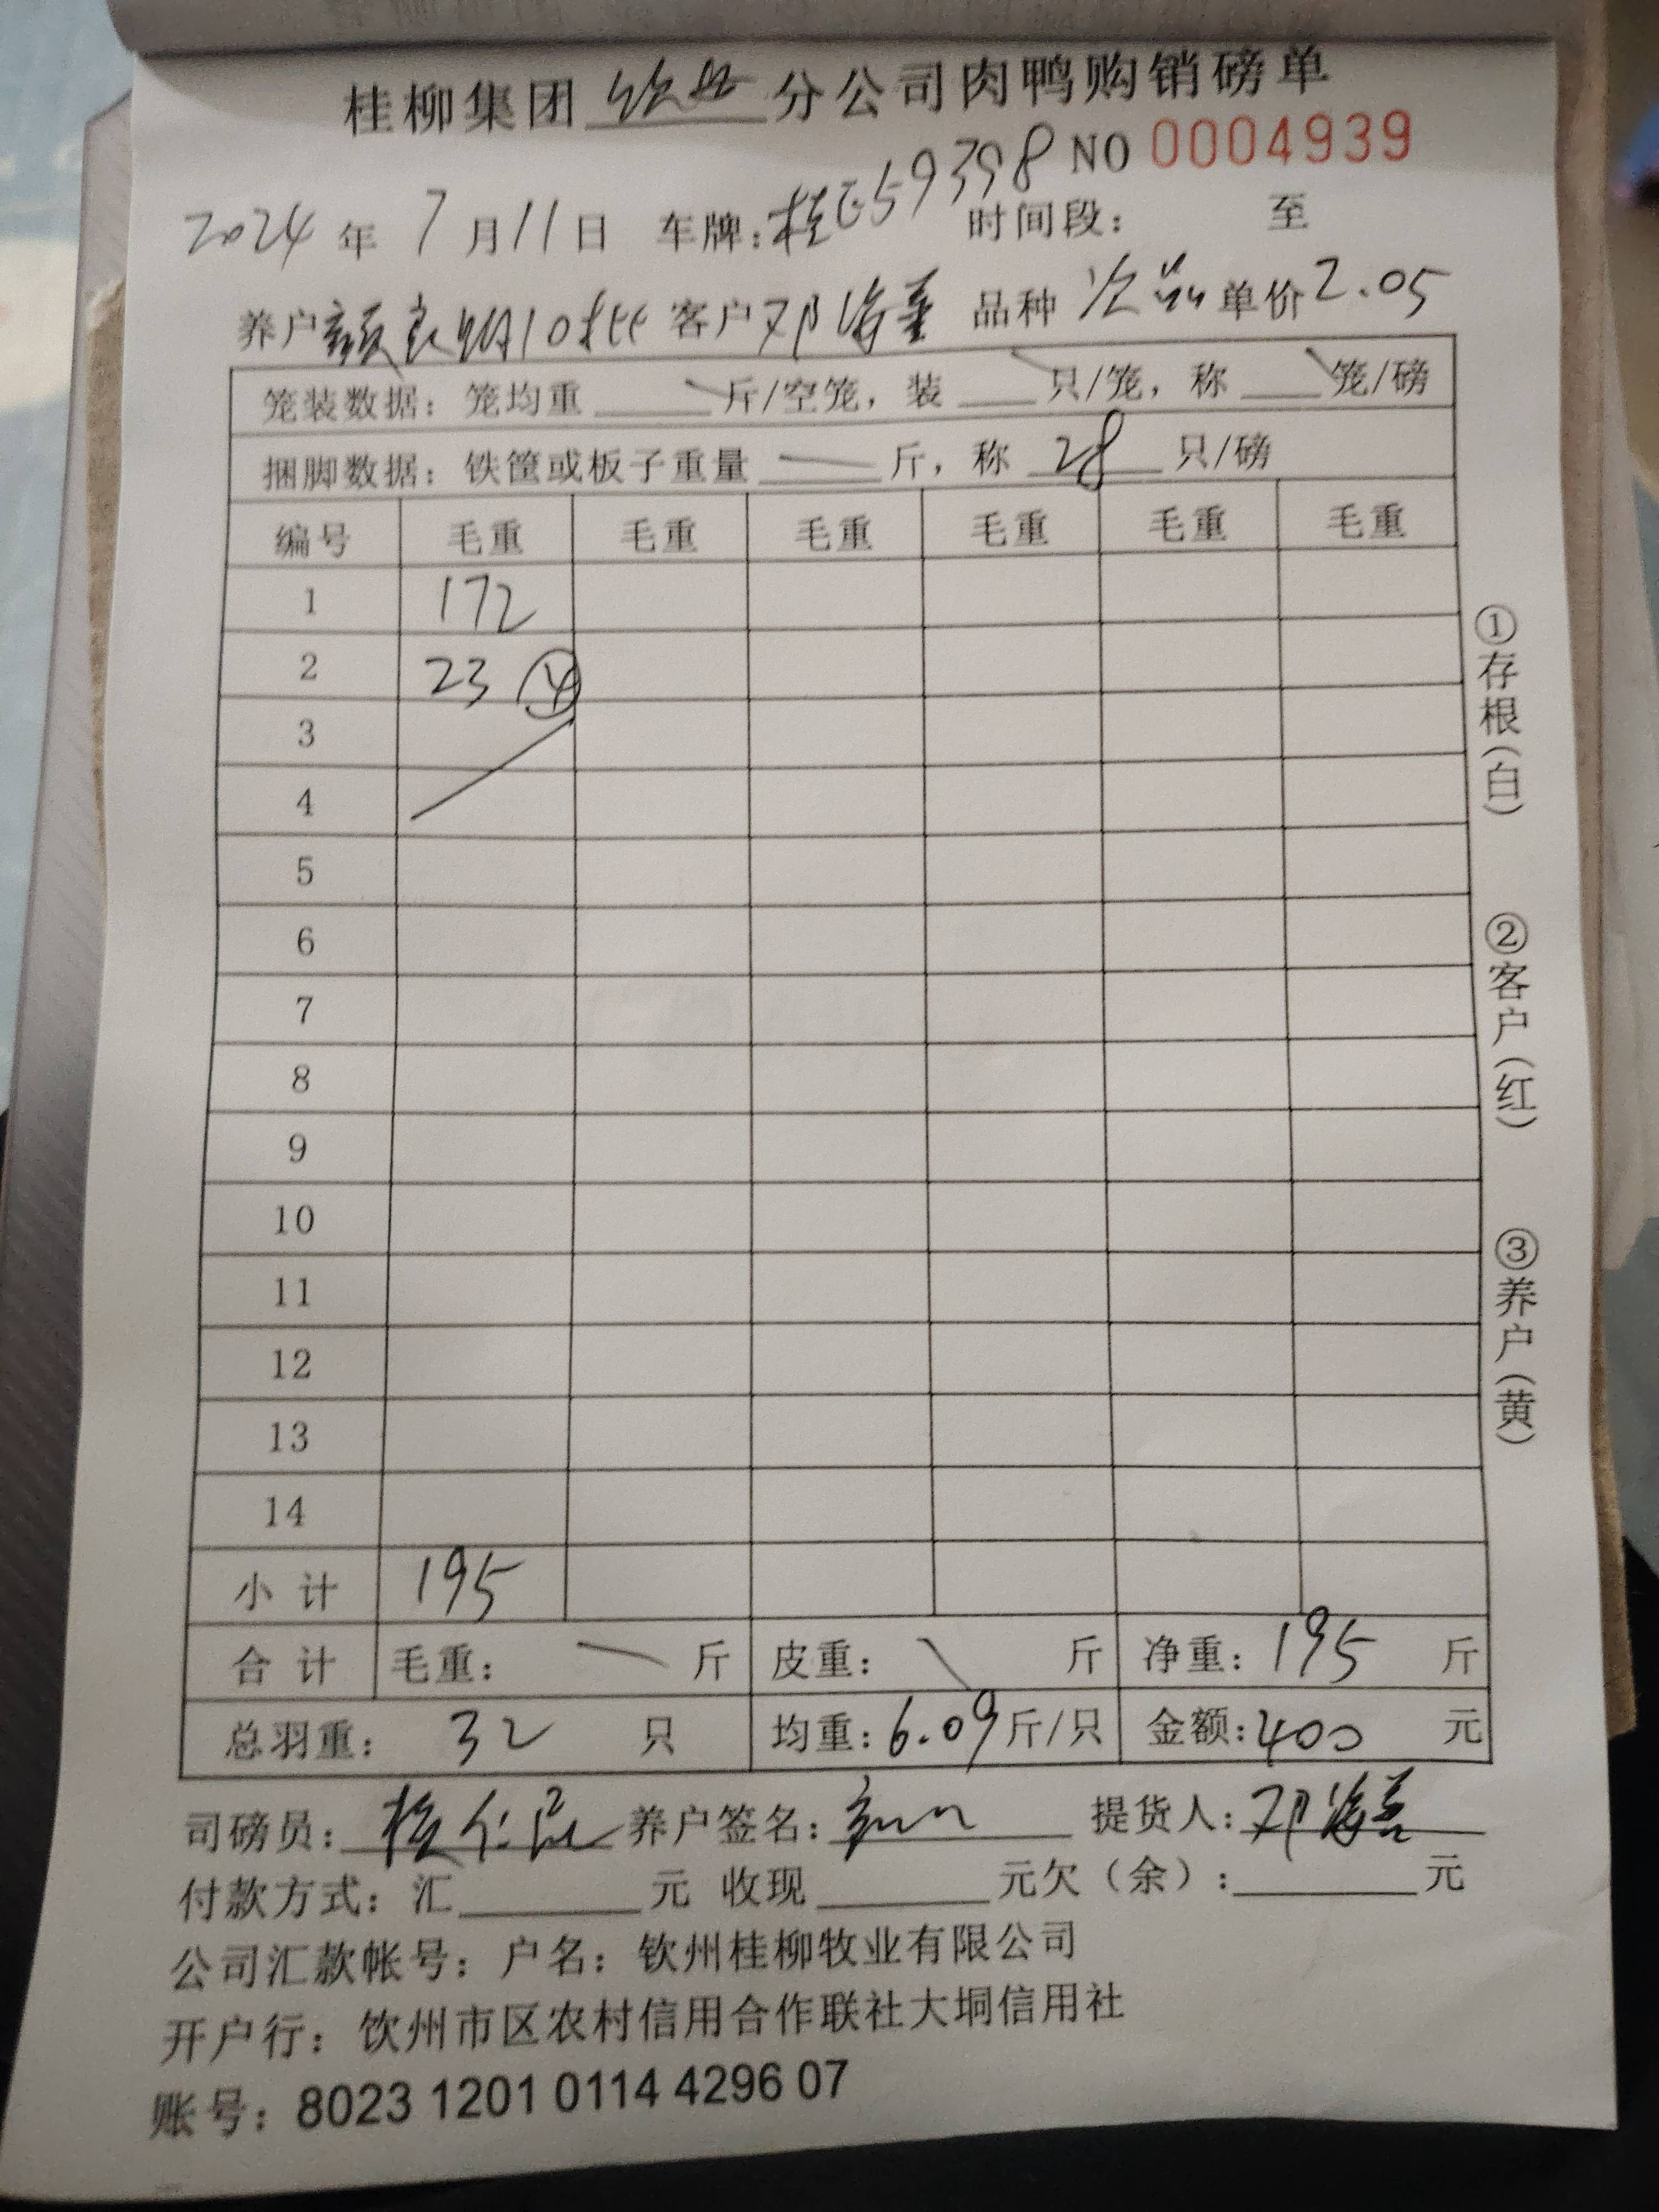 桂柳集团 钦州 分公司肉鸭购销磅单
NO 0004939
2024 年 7 月 11 日 车牌:桂E59398 时间段: 至
养户 颜良明10批 客户 邓海 品种 次品 单价 2.05
笼装数据: 笼均重 斤/空笼, 装 只/笼, 称 笼/磅
捆脚数据: 铁筐或板子重量 斤, 称 28 只/磅
编号 毛重 毛重 毛重 毛重 毛重 毛重
1 172
2 23 ④
3
4
5
6
7
8
9
10
11
12
13
14
小计 195
合计 毛重: 斤 皮重: 斤 净重: 195 斤
总羽重: 32 只 均重: 6.09 斤/只 金额: 400 元
司磅员: 养户签名: 提货人: 邓海
付款方式: 汇 元 收现 元欠(余): 元
公司汇款帐号: 户名: 钦州桂柳牧业有限公司
开户行: 钦州市区农村信用合作联社大垌信用社
账号: 8023 1201 0114 4296 07
①存根(白)
②客户(红)
③养户(黄)